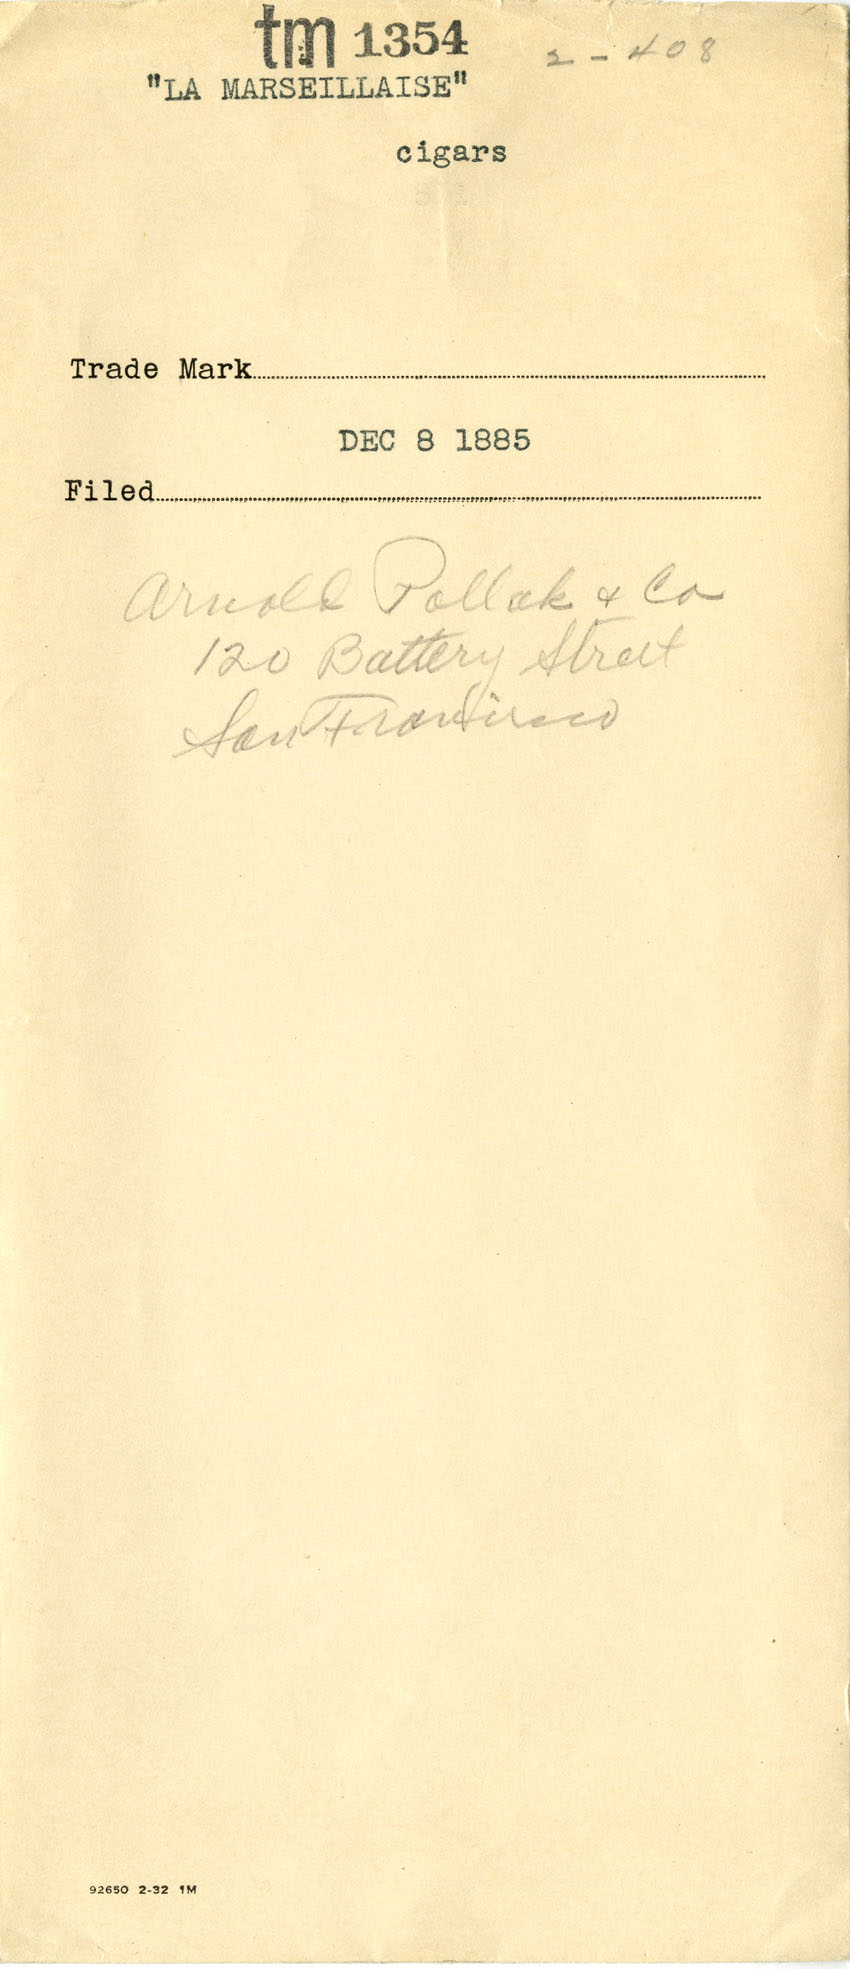 tm 1354 2-408
"LA MARSEILLAISE"
cigars
Trade Mark
DEC 8 1885
Filed
Arnold Pollak & Co
120 Battery Street
San Francisco
92650 2-32 1M